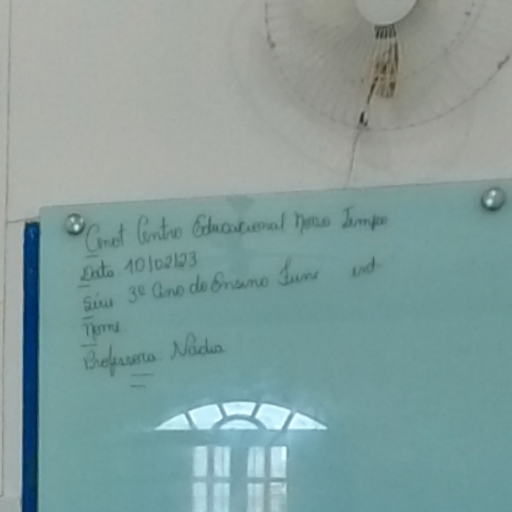 Cenot Centro Educacional Nosso Tempo
Data 10/02/23
Série 3º Ano do Ensino Fun
Nome
Professora Nádia